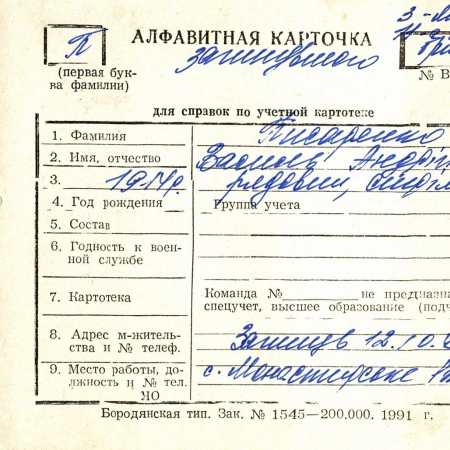 П
АЛФАВИТНАЯ КАРТОЧКА
загинувшого
(первая бук-
ва фамилии)
№ В
для справок по учетной картотеке
1. Фамилия
Писаренко
2. Имя, отчество
Василь Андрій
3.
1914р.
рядовий, стріл
4. Год рождения
Группа учета
5. Состав
6. Годность к воен-
ной службе
7. Картотека
Команда № не предназна
спецучет, высшее образование (подч
8. Адрес м-житель-
ства и № телеф.
Загинув 12.10.
9. Место работы, до-
лжность и № тел.
МО
с. Монастирське
Бородянская тип. Зак. № 1545—200.000. 1991 г.